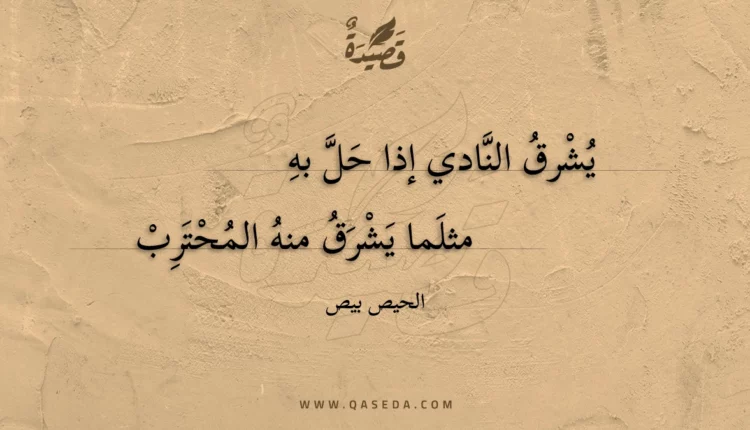 قَصِيْدَةٌ
يُشْرقُ النَّادي إذا حَلَّ بهِ
مثلَما يَشْرَقُ منهُ المُحْتَرِبْ
الحيص بيص
WWW.QASEDA.COM